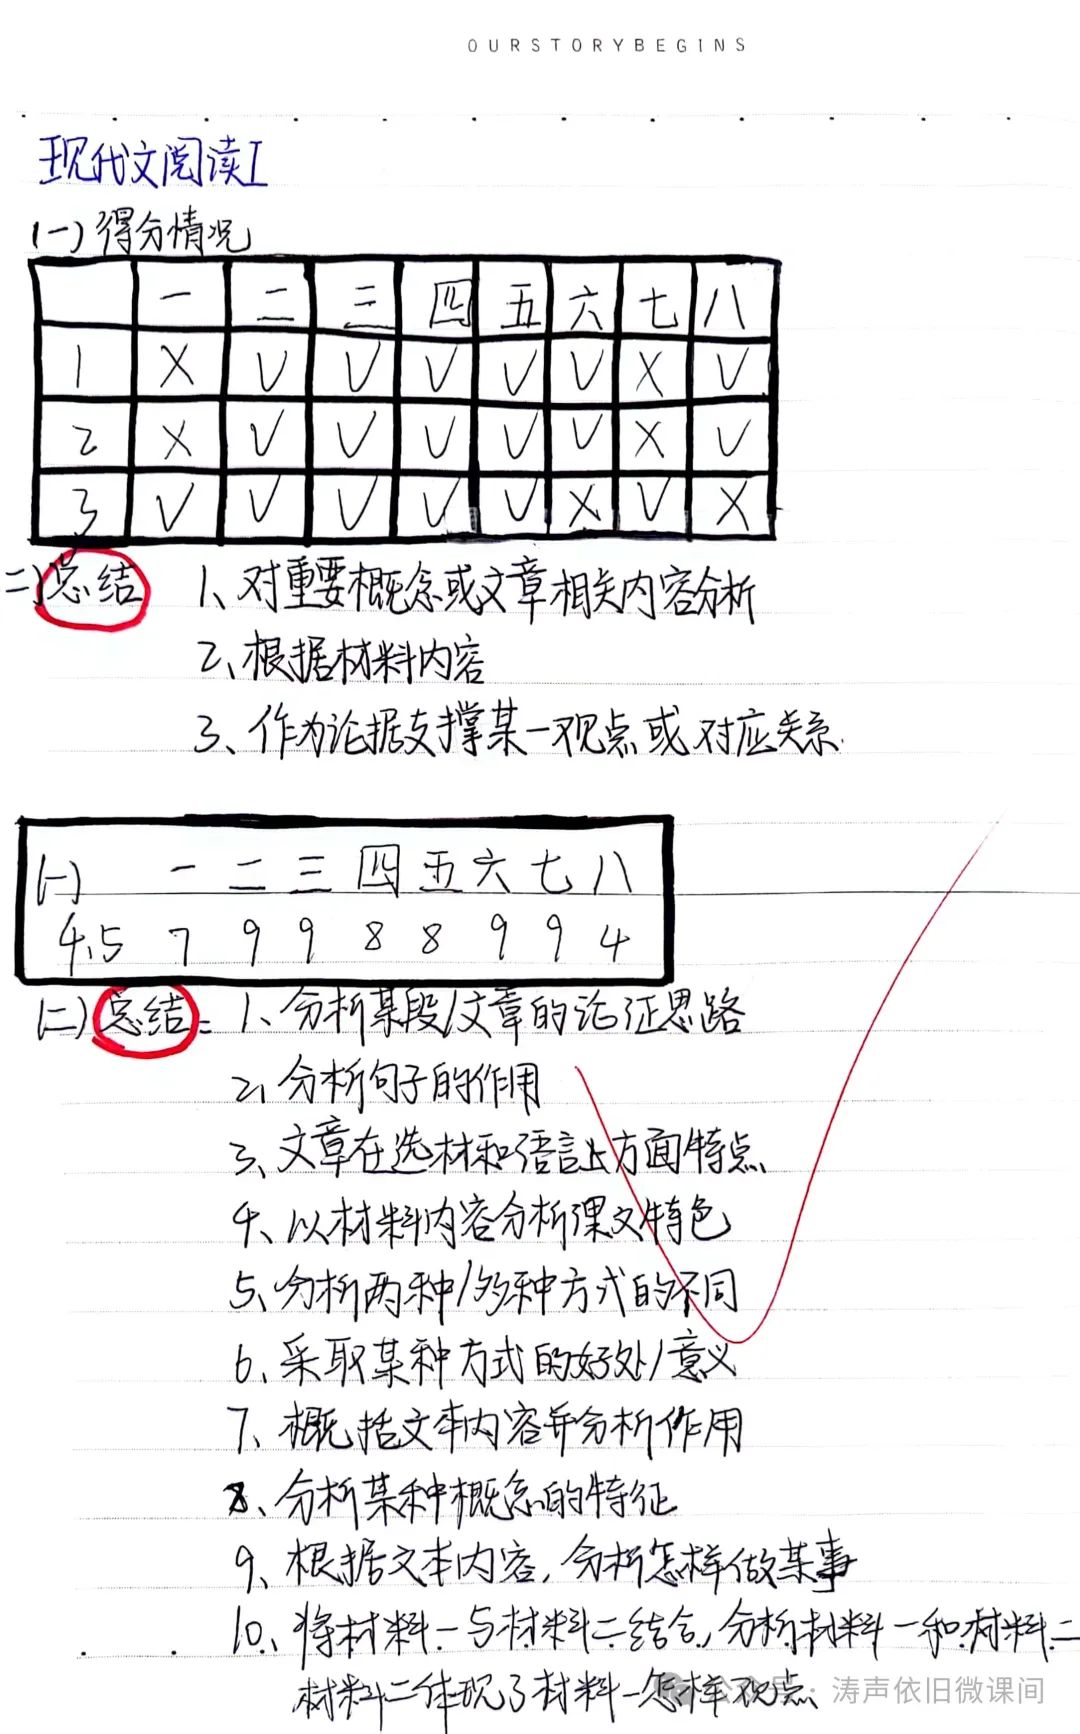 OURSTORYBEGINS
现代文阅读I
(一) 得分情况
一 二 三 四 五 六 七 八
1 X V V V V V X V
2 X V V V V V X V
3 V V V V V X V X
二) 总结 1、对重要概念或文章相关内容分析
2、根据材料内容
3、作为论据支撑某一观点或对应关系.
(一) 一 二 三 四 五 六 七 八
4、5 7 9 9 8 8 9 9 4
(二) 总结: 1、分析某段/文章的论证思路
2、分析句子的作用
3、文章在选材和语言上方面特点、
4、以材料内容分析课文特色
5、分析两种/多种方式的不同
6、采取某种方式的好处/意义
7、概括文本内容并分析作用
8、分析某种概念的特征
9、根据文本内容,分析怎样做某事
10、将材料一与材料二结合,分析材料一和材料二
材料二体现了材料一怎样观点、
公众号:涛声依旧微课间